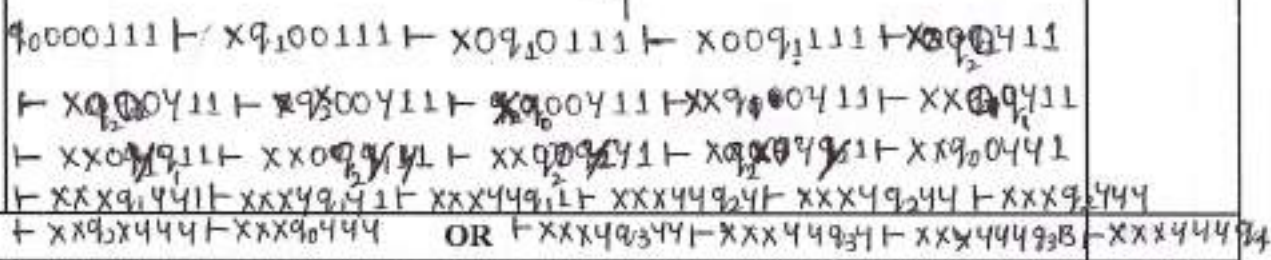 q₀000111 ⊢ Xq₁00111 ⊢ X0q₁0111 ⊢ X00q₁111 ⊢ X0q₂0Y11
⊢ Xq₂00Y11 ⊢ q₂X00Y11 ⊢ Xq₀00Y11 ⊢ XXq₁0Y11 ⊢ XX0q₁Y11
⊢ XX0Yq₁11 ⊢ XX0q₂YY1 ⊢ XXq₂0YY1 ⊢ Xq₂X0YY1 ⊢ XXq₀0YY1
⊢ XXXq₁YY1 ⊢ XXXYq₁Y1 ⊢ XXXYYq₁1 ⊢ XXXYYq₂Y ⊢ XXXYq₂YY ⊢ XXXq₂YYY
⊢ XXq₂XYYY ⊢ XXXq₀YYY OR ⊢ XXXYq₃YY ⊢ XXXYYq₃Y ⊢ XXXYYYq₃B ⊢ XXXYYYq₄